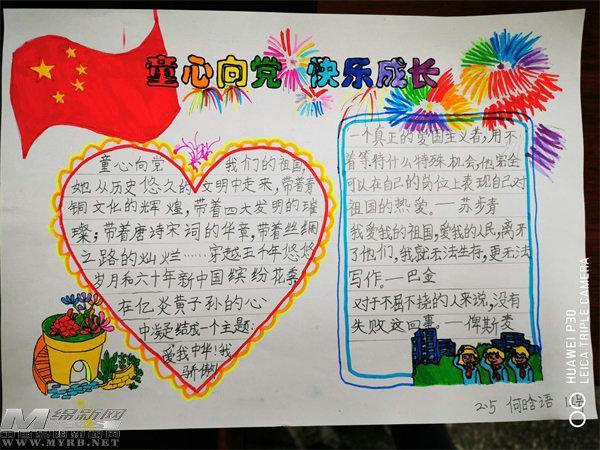 童心向党 快乐成长
童心向党 我们的祖国,
她从历史悠久的文明中走来,带着青
铜文化的辉煌,带着四大发明的璀
璨;带着唐诗宋词的华章,带着丝绸
之路的灿烂……穿越五千年悠悠
岁月和六十年新中国缤纷花季
在亿炎黄子孙的心
中凝结成一个主题:
爱我中华!我
骄傲!
一个真正的爱国主义者,用不
着等待什么特殊机会,他完全
可以在自己的岗位上表现自己对
祖国的热爱。——苏步青
我爱我的祖国,爱我的人民,离开
了他们,我就无法生存,更无法
写作。——巴金
对于不屈不挠的人来说,没有
失败这回事。——俾斯麦
2.5 何晗语
HUAWEI P30
LEICA TRIPLE CAMERA
绵新网
WWW.MYRB.NET